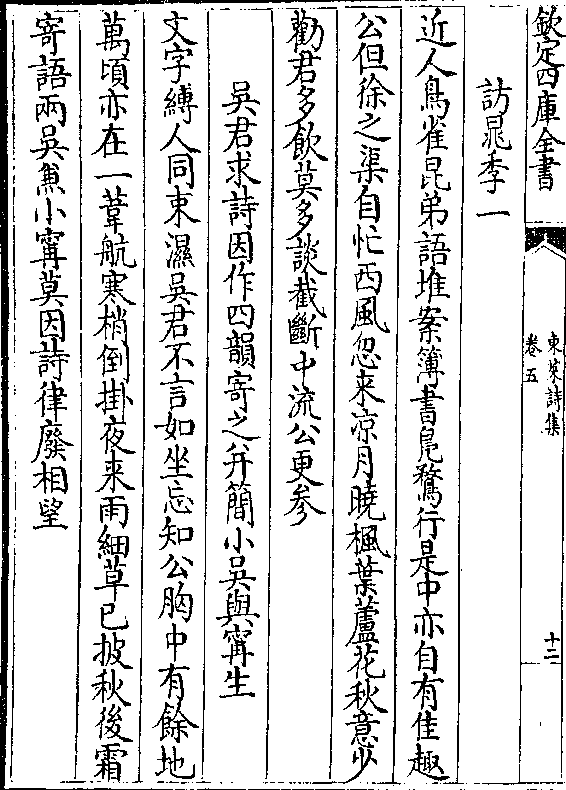 欽定四庫全書
東萊詩集
卷五
十二
訪晁季一
近人鳥雀昆弟語堆案簿書鳬鶩行是中亦自有佳趣
公但徐之渠自忙西風忽来凉月曉楓葉蘆花秋意少
勸君多飲莫多談截斷中流公更参
吳君求詩因作四韻寄之并簡小吳與甯生
文字縛人同束濕吳君不言如坐忘知公胸中有餘地
萬頃亦在一葦航寒梢倒掛夜来雨細草已披秋後霜
寄語兩吳兼小甯莫因詩律廢相望